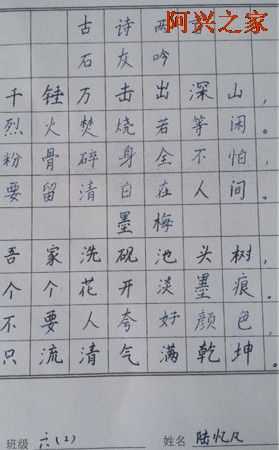 古诗两
阿兴之家
石灰吟
千锤万击出深山，
烈火焚烧若等闲。
粉骨碎身全不怕，
要留清白在人间。
墨梅
吾家洗砚池头树，
个个花开淡墨痕。
不要人夸好颜色，
只流清气满乾坤。
班级 六(2) 姓名 陆忆